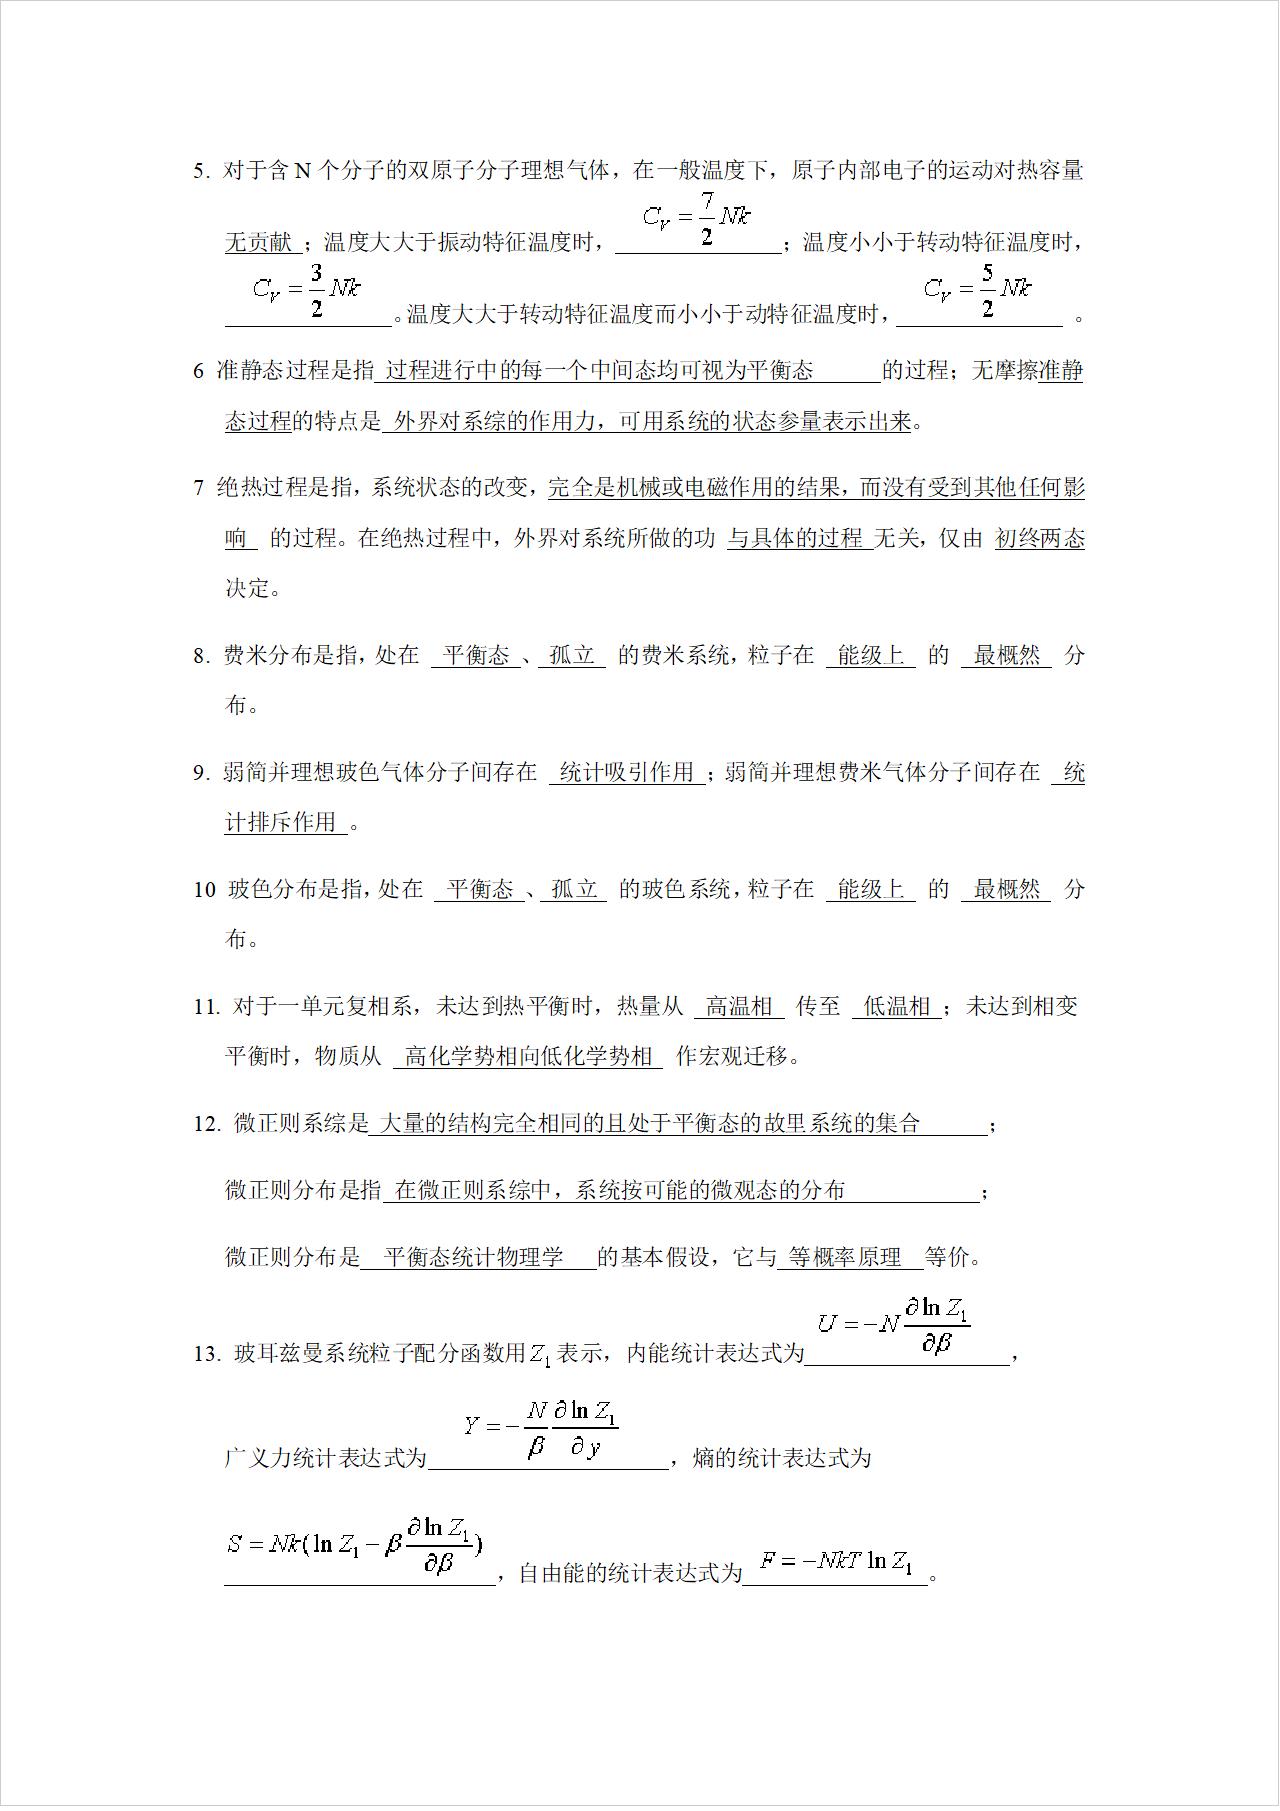 5. 对于含 N 个分子的双原子分子理想气体，在一般温度下，原子内部电子的运动对热容量
无贡献 ；温度大大于振动特征温度时， C_V = 7/2 Nk ；温度小小于转动特征温度时，
C_V = 3/2 Nk 。温度大大于转动特征温度而小小于动特征温度时， C_V = 5/2 Nk 。
6 准静态过程是指 过程进行中的每一个中间态均可视为平衡态 的过程；无摩擦准静
态过程的特点是 外界对系综的作用力，可用系统的状态参量表示出来。
7 绝热过程是指，系统状态的改变，完全是机械或电磁作用的结果，而没有受到其他任何影
响 的过程。在绝热过程中，外界对系统所做的功 与具体的过程 无关，仅由 初终两态
决定。
8. 费米分布是指，处在 平衡态 、 孤立 的费米系统，粒子在 能级上 的 最概然 分
布。
9. 弱简并理想玻色气体分子间存在 统计吸引作用 ；弱简并理想费米气体分子间存在 统
计排斥作用 。
10 玻色分布是指，处在 平衡态 、 孤立 的玻色系统，粒子在 能级上 的 最概然 分
布。
11. 对于一单元复相系，未达到热平衡时，热量从 高温相 传至 低温相 ；未达到相变
平衡时，物质从 高化学势相向低化学势相 作宏观迁移。
12. 微正则系综是 大量的结构完全相同的且处于平衡态的故里系统的集合 ；
微正则分布是指 在微正则系综中，系统按可能的微观态的分布 ；
微正则分布是 平衡态统计物理学 的基本假设，它与 等概率原理 等价。
13. 玻耳兹曼系统粒子配分函数用 Z₁ 表示，内能统计表达式为 U = −N ∂ln Z₁/∂β ，
广义力统计表达式为 Y = −N/β ∂ln Z₁/∂y ，熵的统计表达式为
S = Nk(ln Z₁ − β ∂ln Z₁/∂β) ，自由能的统计表达式为 F = −NkT ln Z₁ 。